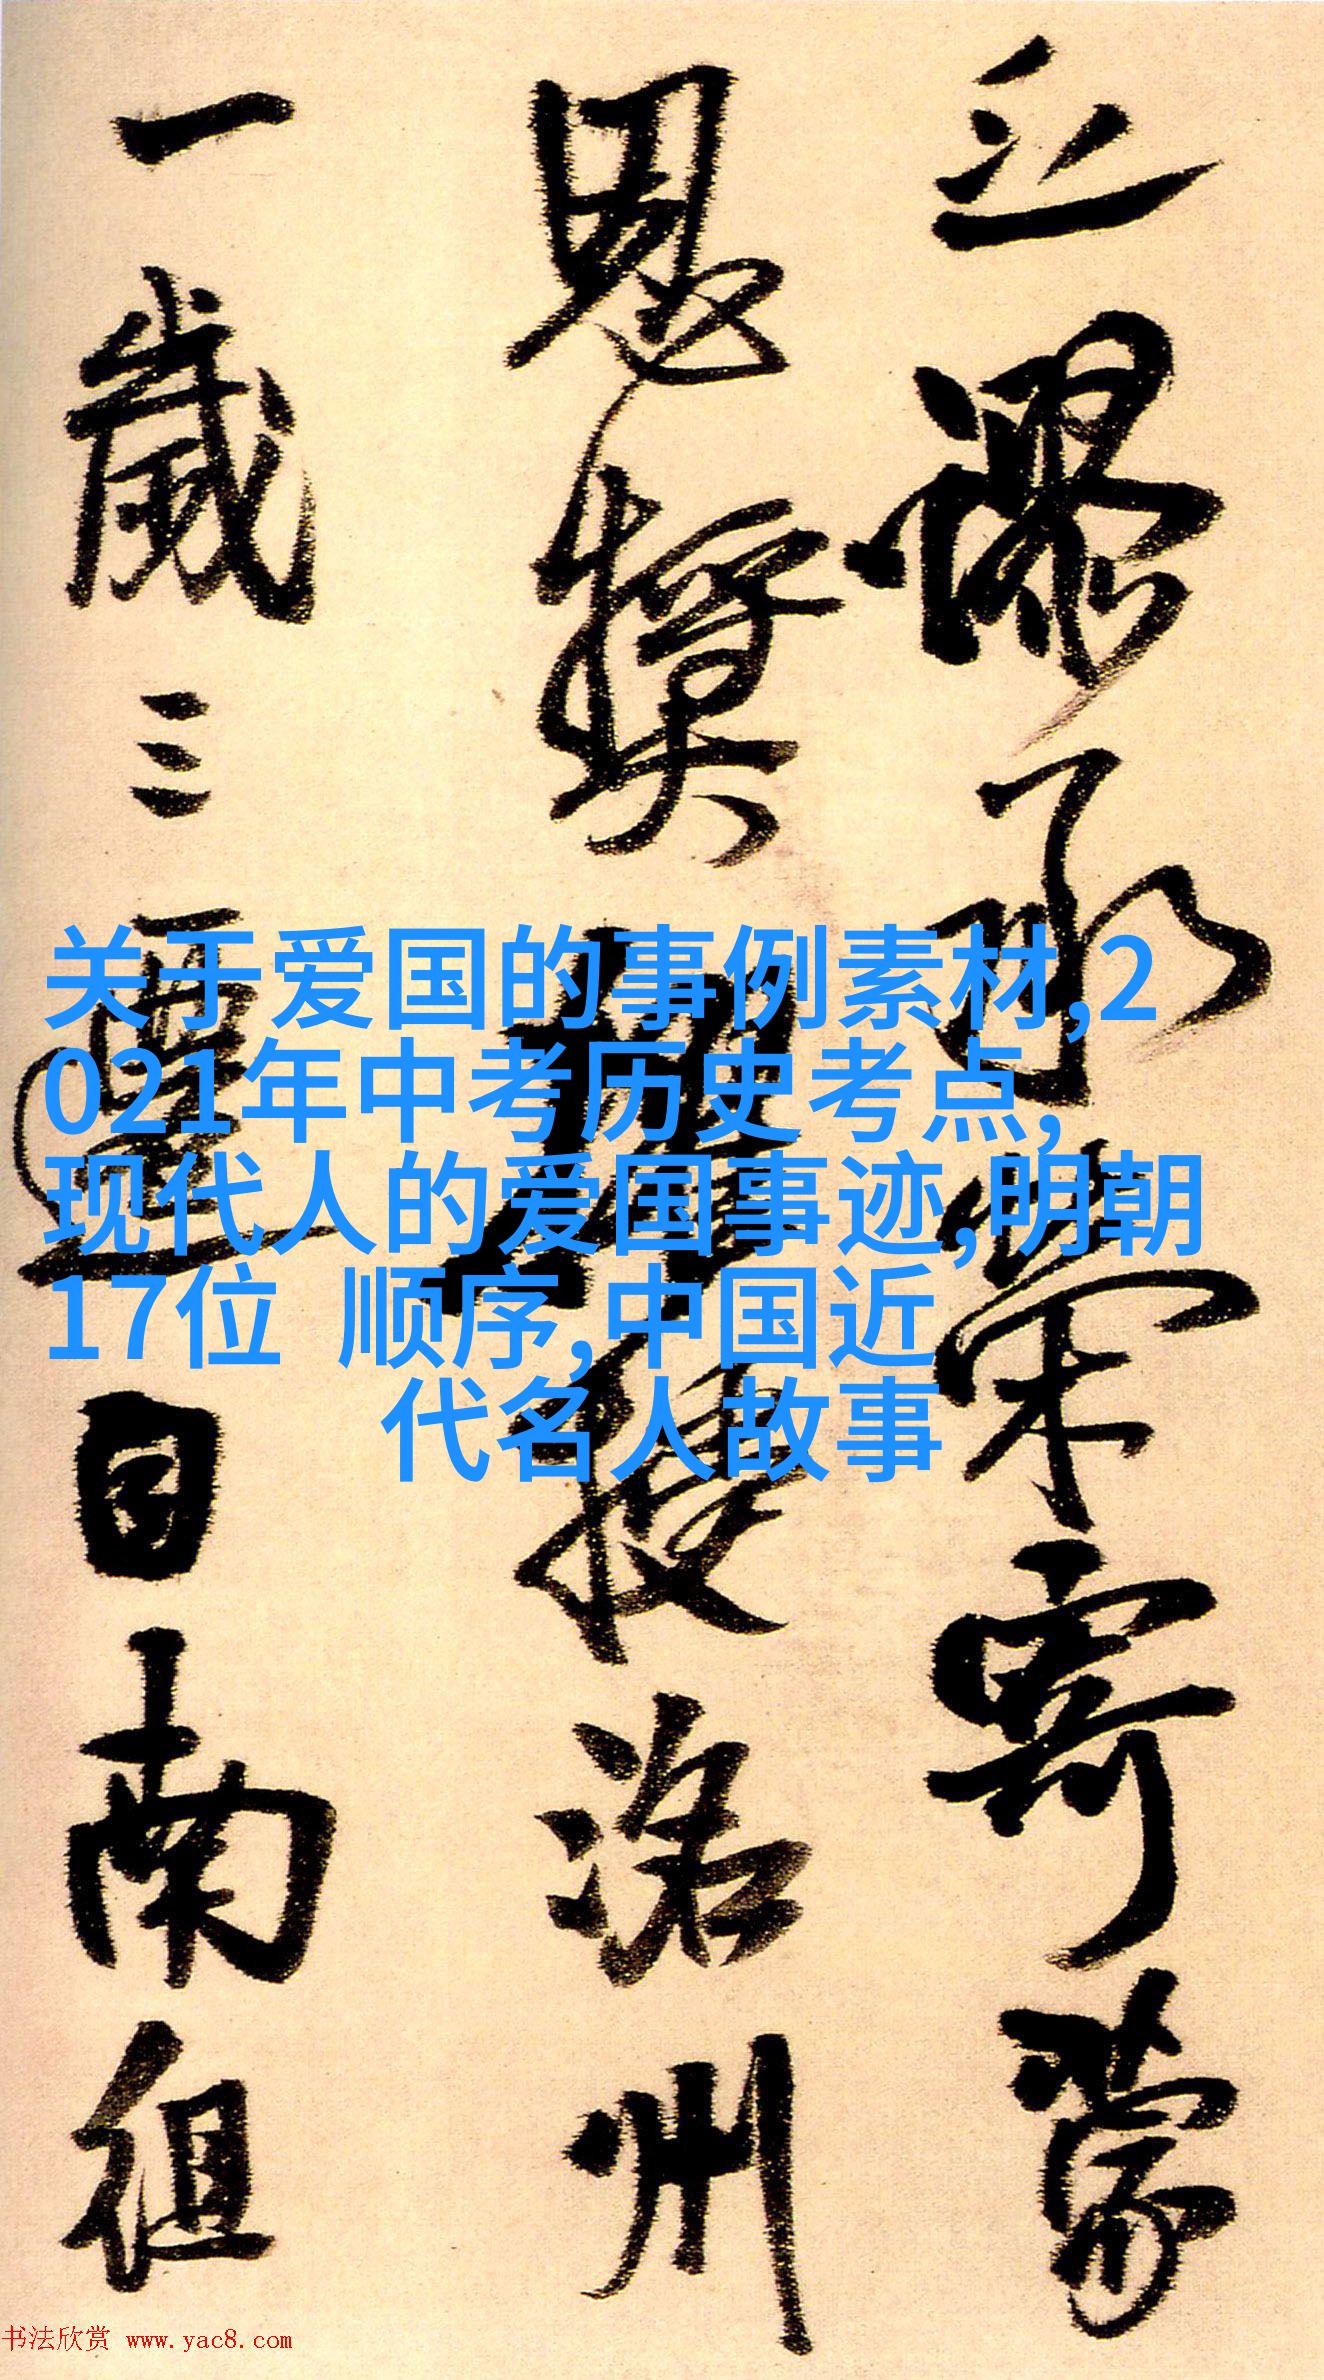 謬承榮寄蒙
恩獎擢授洛州
一歲三遷自南徂
关于爱国的事例素材,2
021年中考历史考点,
现代人的爱国事迹,明朝
17位 顺序,中国近
代名人故事
书法欣赏 www.yac8.com